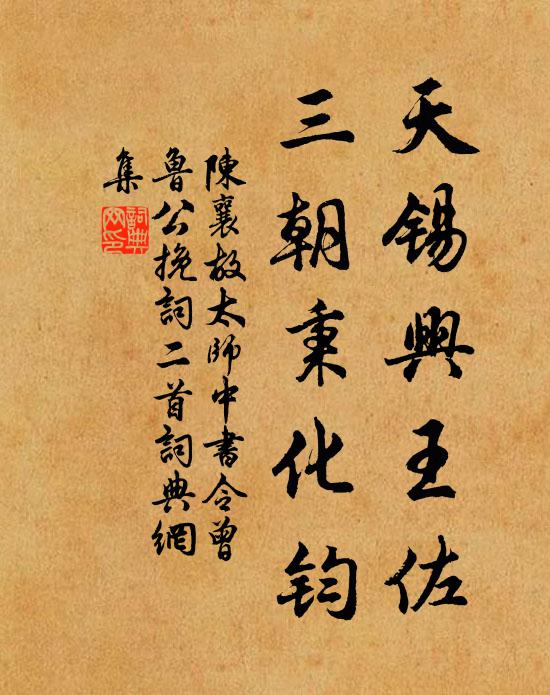 天錫興王佐
三朝秉化鈞
陳襄故太師中書令曾
魯公挽詞二首詞典網
集
詞典
网印